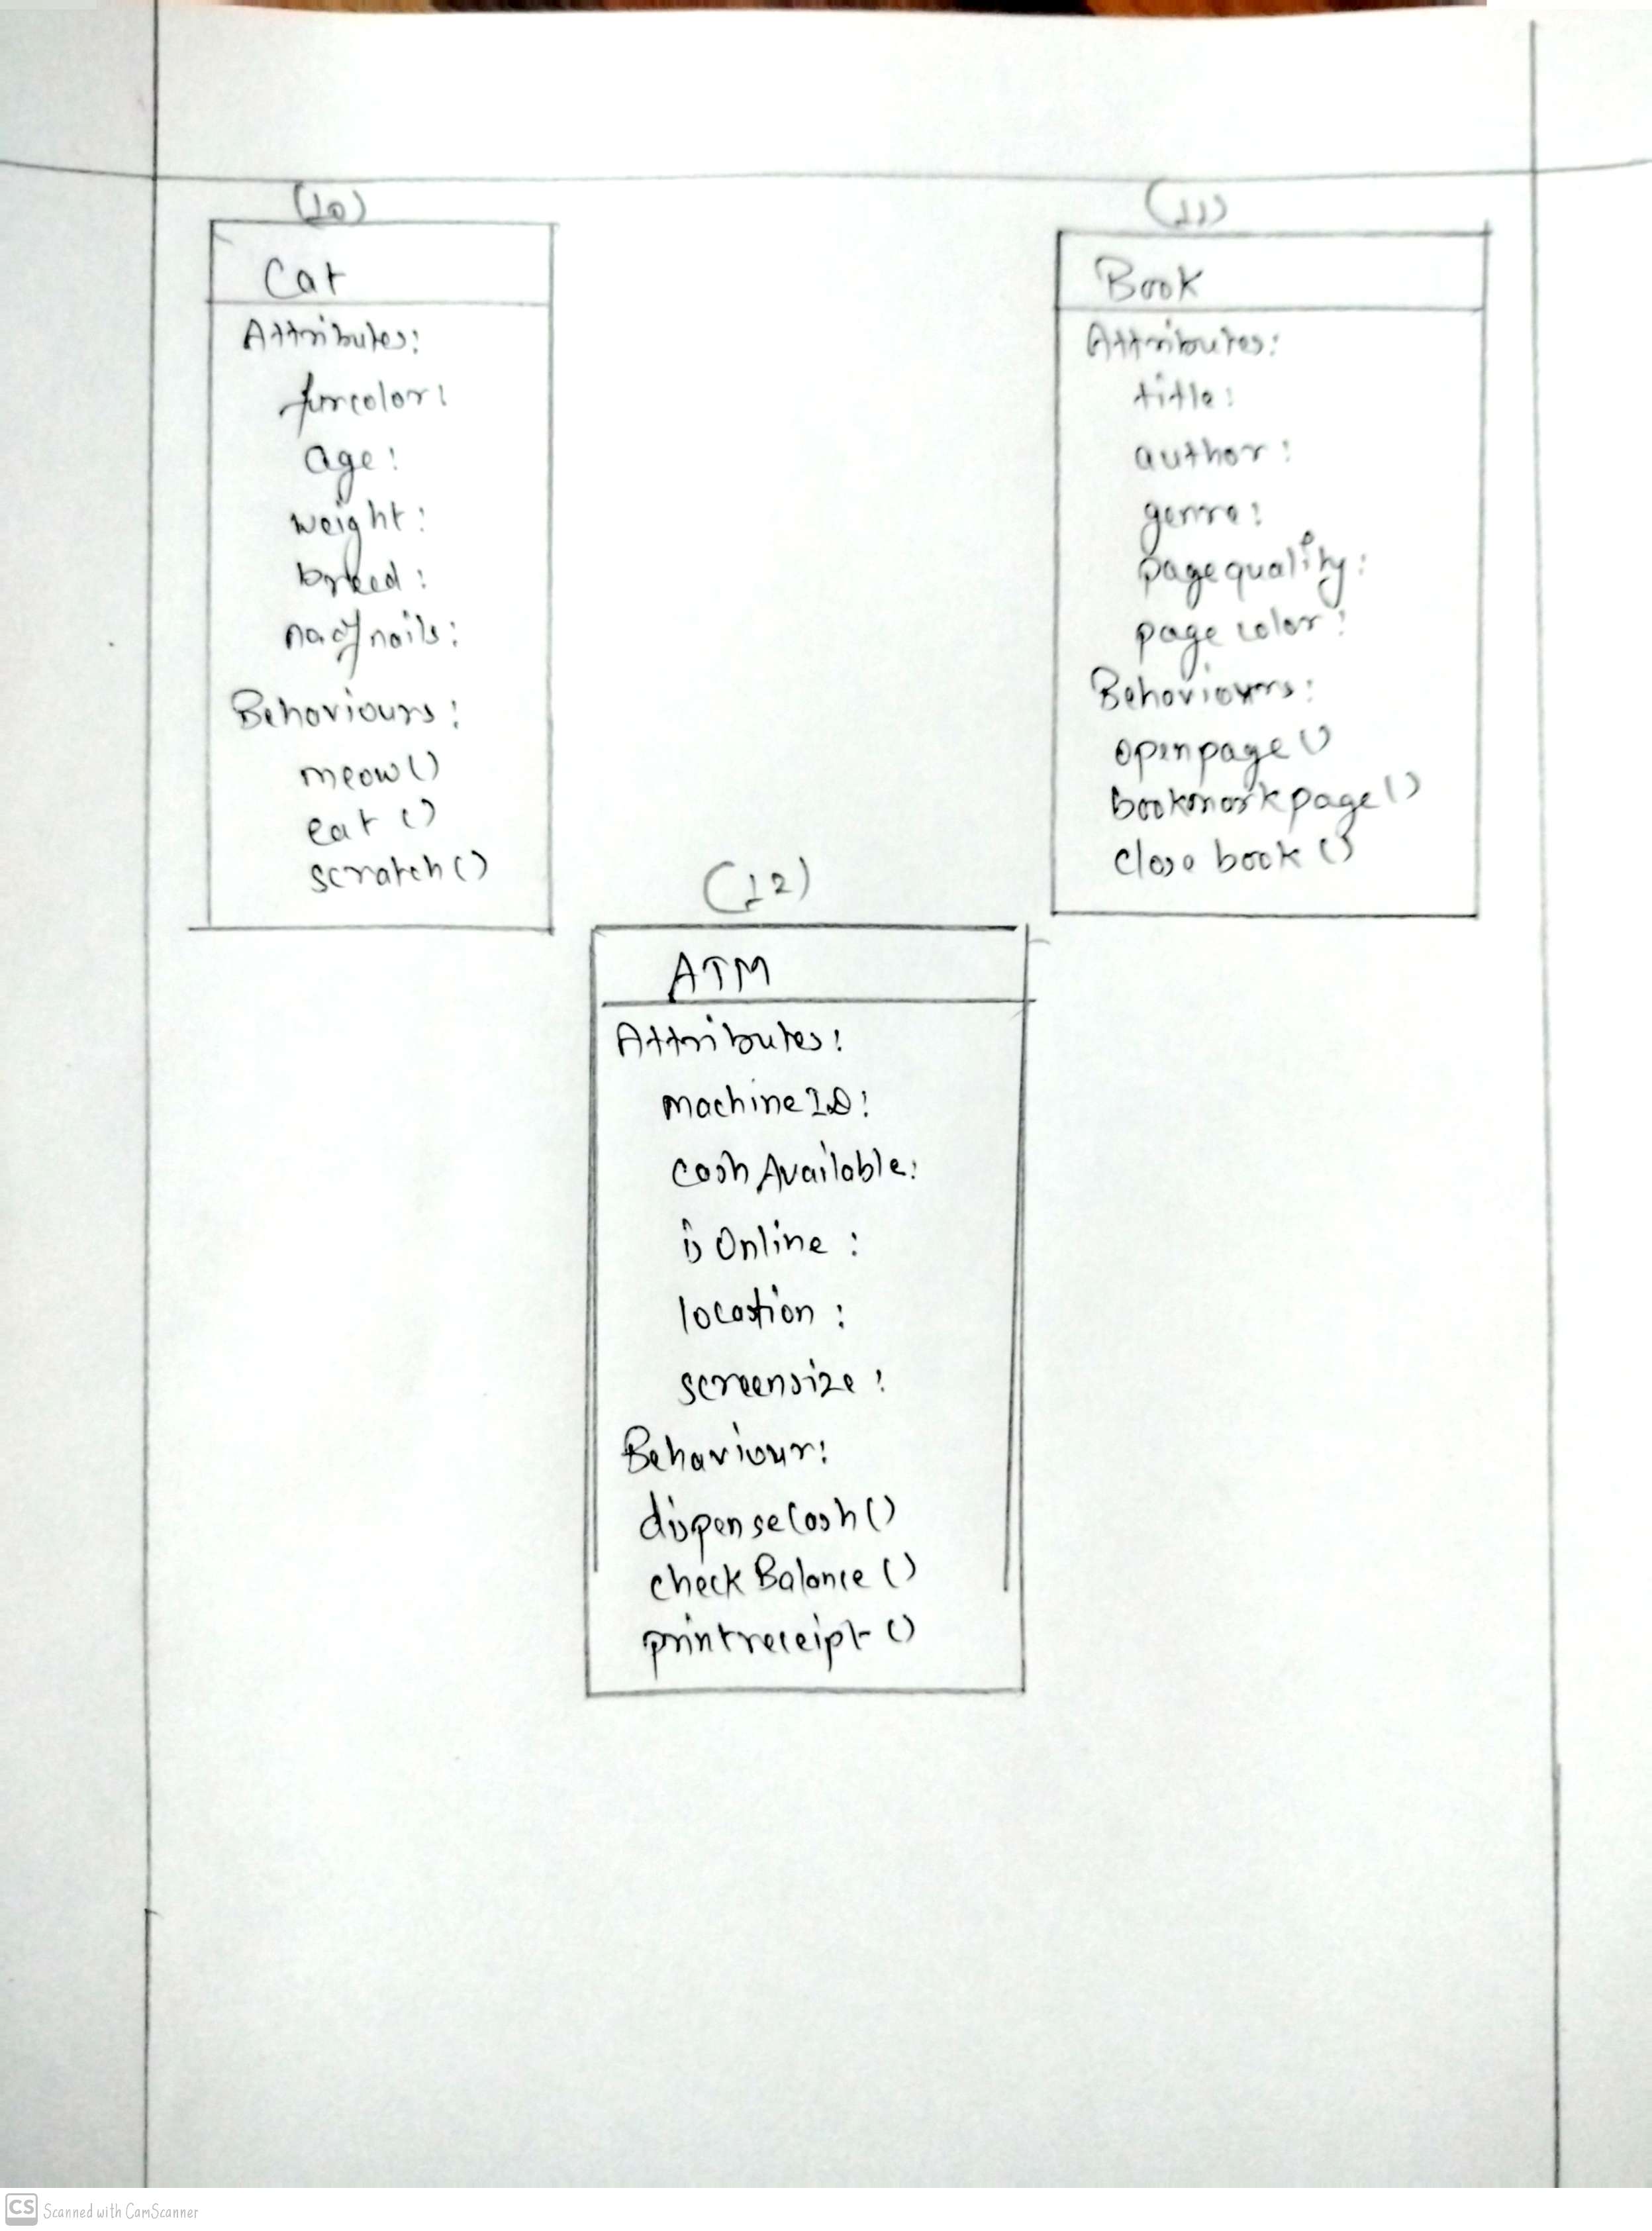 (10)
Cat
Attributes:
furcolor:
age:
weight:
breed:
no of nails:
Behaviours:
meow()
eat ()
scratch()
(11)
Book
Attributes:
title:
author:
genre:
pagequality:
page color:
Behaviours:
openpage()
bookmarkpage()
close book ()
(12)
ATM
Attributes:
machineID:
cashAvailable:
isOnline :
location :
screensize :
Behaviour:
dispenseCash()
checkBalance ()
printreceipt ()
CS Scanned with CamScanner